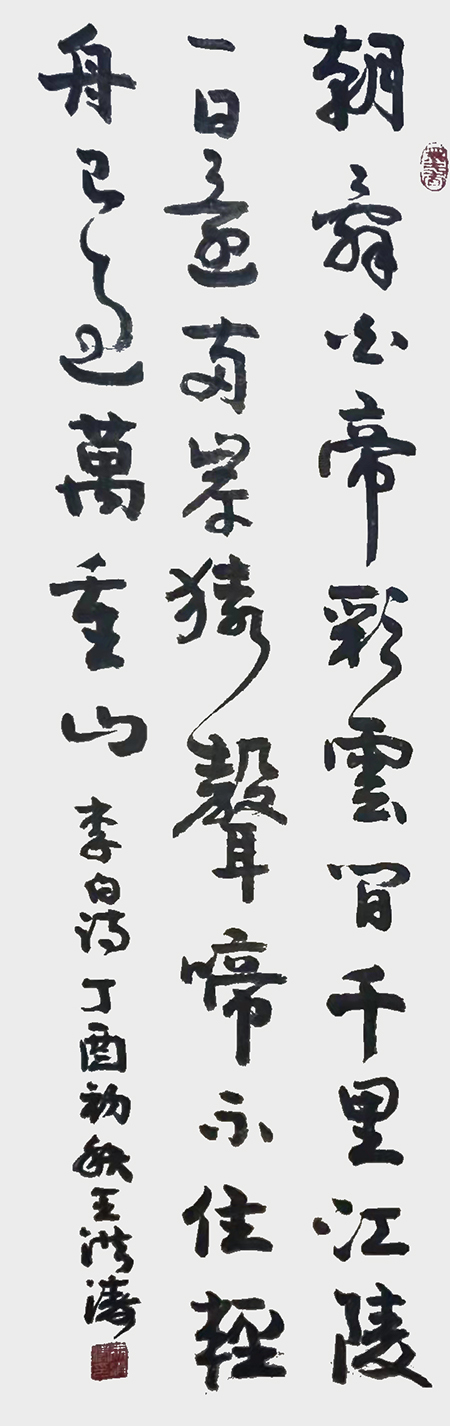 朝辭白帝彩雲間千里江陵
一日還兩岸猿聲啼不住輕
舟已過萬重山 李白詩丁酉初秋王洪濤